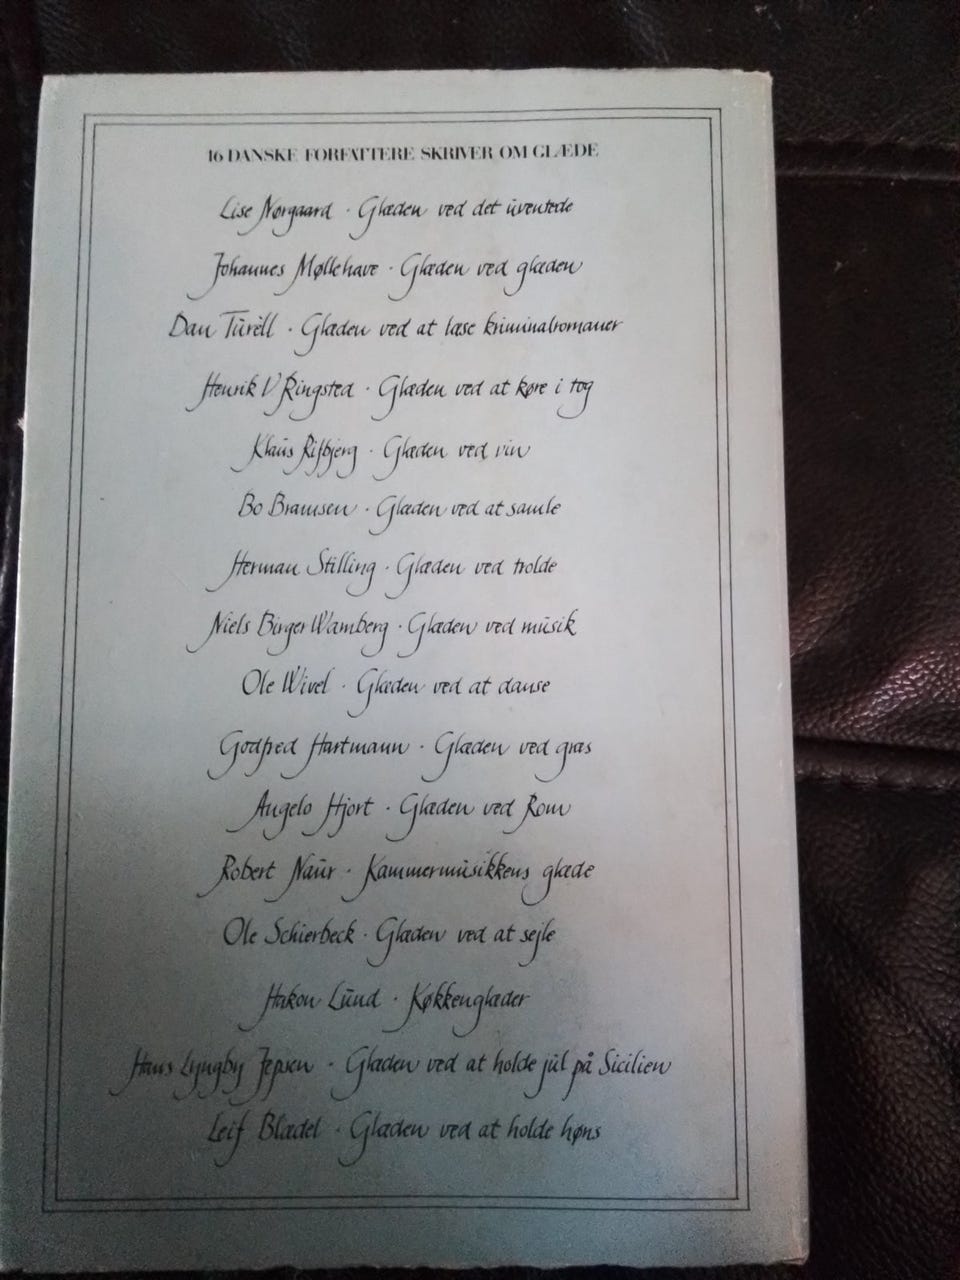 16 DANSKE FORFATTERE SKRIVER OM GLÆDE
Lise Nørgaard · Glæden ved det uventede
Johannes Møllehave · Glæden ved glæden
Dan Turèll · Glæden ved at læse kriminalromaner
Henrik V Ringsted · Glæden ved at køre i tog
Klaus Rifbjerg · Glæden ved vin
Bo Bramsen · Glæden ved at samle
Herman Stilling · Glæden ved trolde
Niels Birger Wamberg · Glæden ved musik
Ole Wivel · Glæden ved at danse
Godfred Hartmann · Glæden ved græs
Angelo Hjort · Glæden ved Rom
Robert Naur · Kammermusikkens glæde
Ole Schierbeck · Glæden ved at sejle
Hakon Lund · Køkkenglæder
Hans Lyngby Jepsen · Glæden ved at holde jul på Sicilien
Leif Blædel · Glæden ved at holde høns